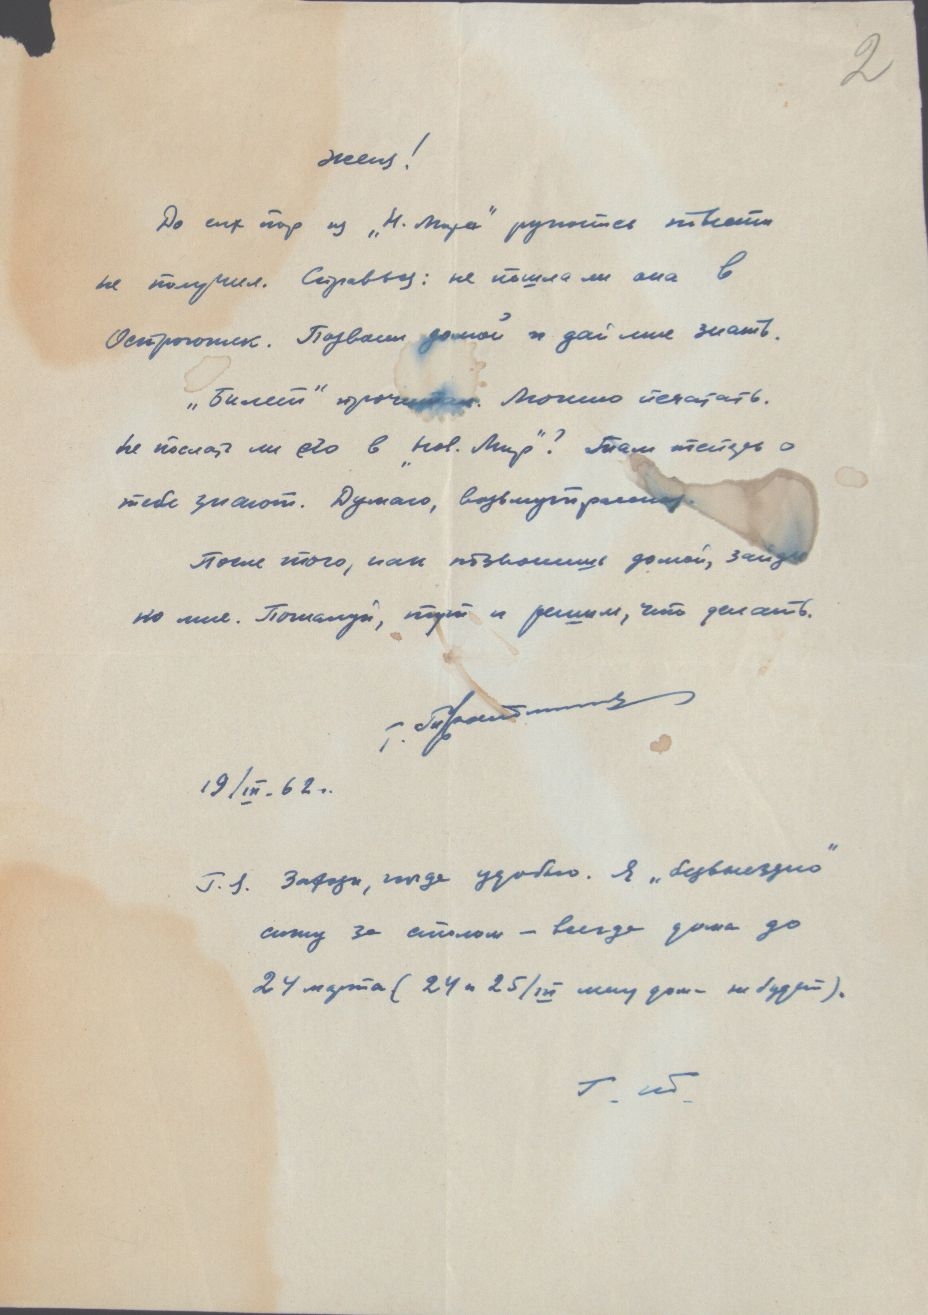 2
Женя!
До сих пор из „Н. Мира" рукопись
не получил. Справься: не пошла ли она в
Острогожск. Позвони домой и дай мне знать.
„Билет" прочитал. Можно печатать.
Не послать ли его в „Нов. Мир"? Там теперь о
тебе знают. Думаю, возьмут
После того, как позвонишь домой, зайди
ко мне. Пожалуй, тут и решим, что делать.
Г. Троепольский
19/III-62 г.
P.S. Заходи, когда удобно. Я „безвыездно"
сижу за столом – всегда дома до
24 марта (24 и 25/III меня дома не будет).
Г.